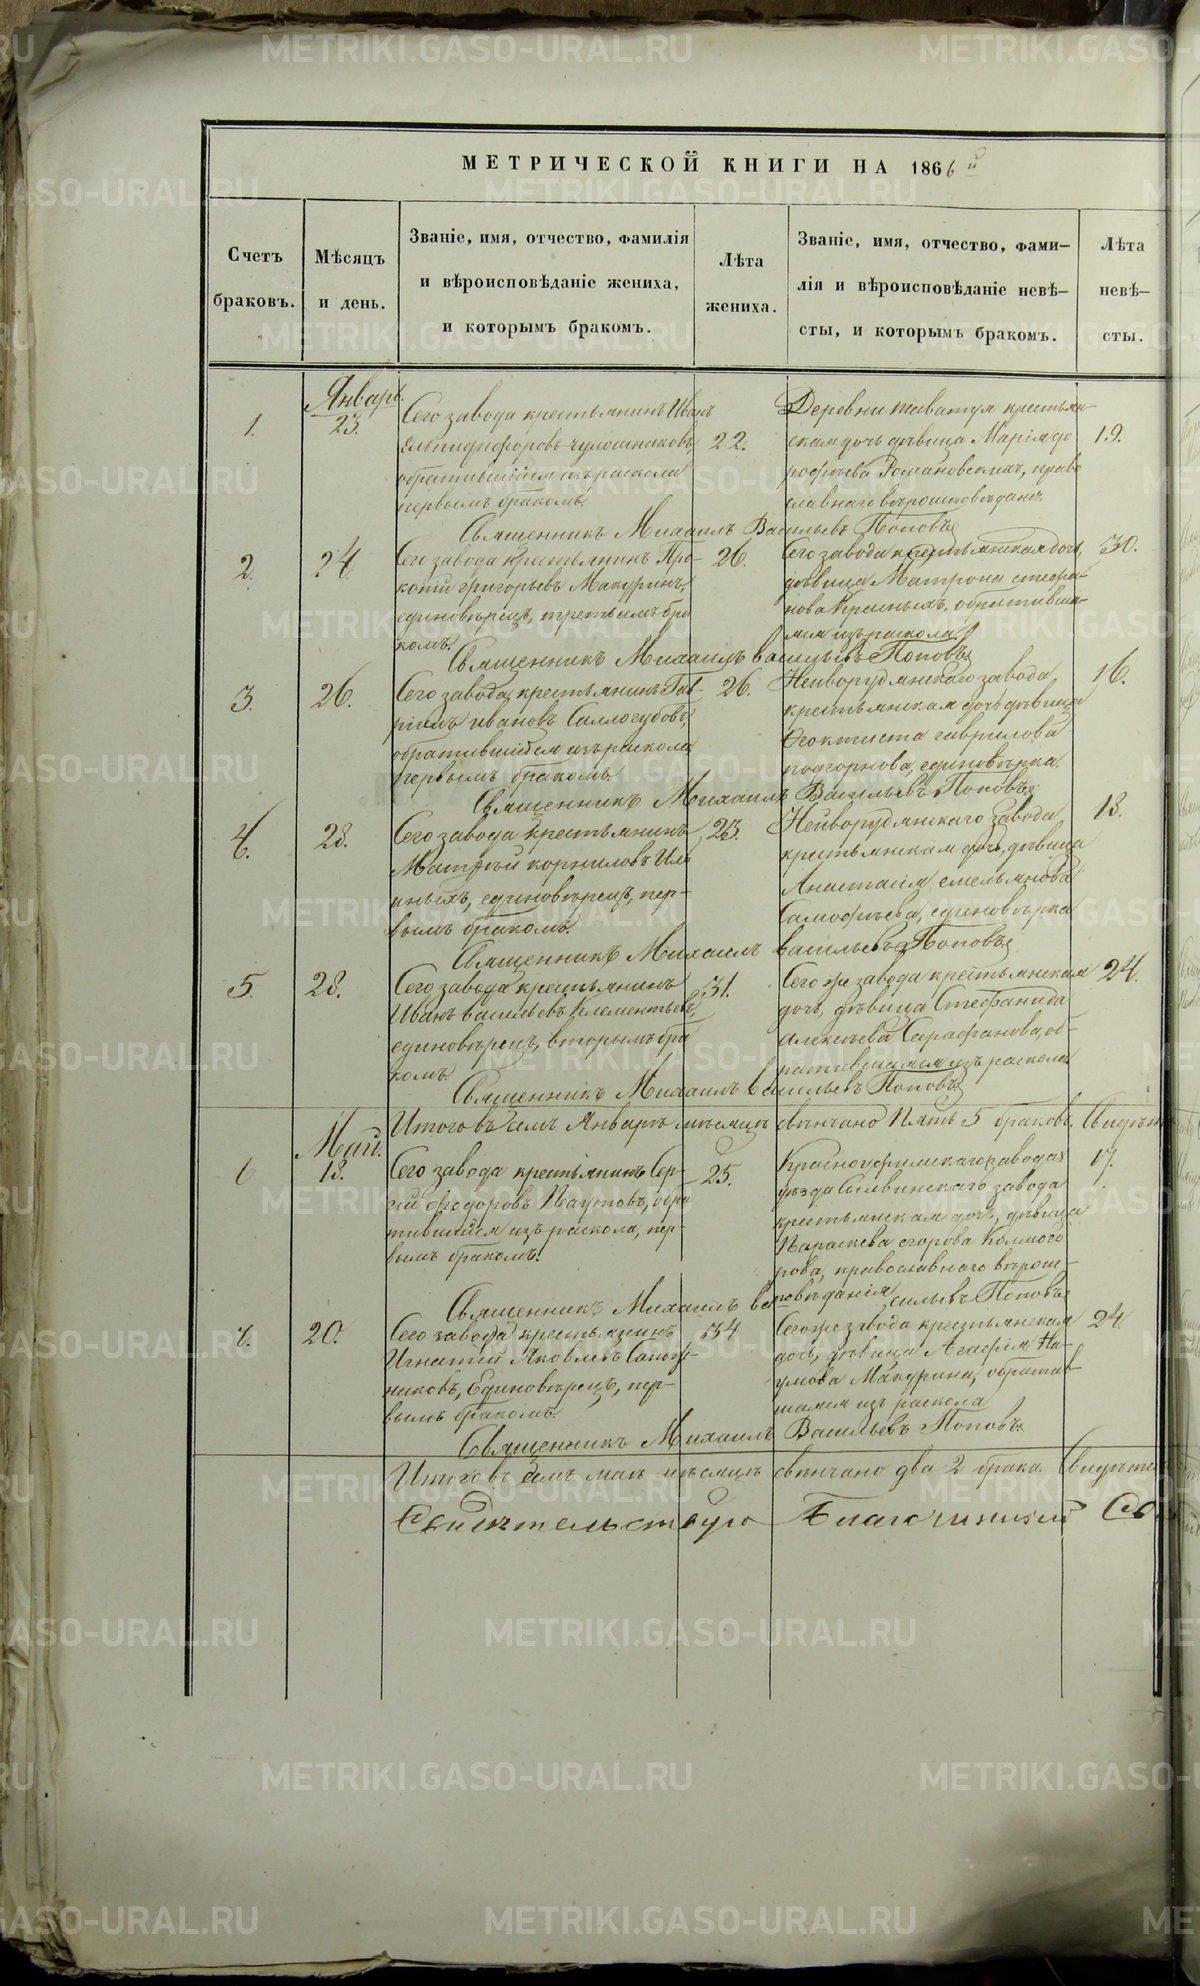 МЕТРИЧЕСКОЙ КНИГИ НА 1866 й
Счетъ браковъ.
Мѣсяцъ и день.
Званіе, имя, отчество, фамилія
и вѣроисповѣданіе жениха,
и которымъ бракомъ.
Лѣта жениха.
Званіе, имя, отчество, фами-
лія и вѣроисповѣданіе невѣ-
сты, и которымъ бракомъ.
Лѣта невѣ-
сты.
Январь.
1.
23.
Сего завода крестьянинъ Иванъ
Ельпидифоровъ Чулошниковъ,
обратившійся изъ раскола
первымъ бракомъ.
22.
Деревни Таватуя крестьян-
ская дочь дѣвица Марія До
рофѣева Романовскихъ, право
славнаго вѣроисповѣданія
19.
Священникъ Михаилъ Васильевъ Поповъ
2.
24.
Сего завода крестьянинъ Про-
копій Григорьевъ Макуринъ,
единовѣрецъ, третьимъ бра
комъ.
26.
Сего завода крестьянская дочь,
дѣвица Матрона Стефа-
нова Красныхъ, обративша-
яся изъ раскола.
30.
Священникъ Михаилъ Васильевъ Поповъ
3.
26.
Сего завода крестьянинъ Гав-
ріилъ Ивановъ Саллогубовъ,
обратившійся изъ раскола
первымъ бракомъ
26.
Нейворудянскаго завода
крестьянская дочь дѣвица
Феоктиста Гаврилова
Подгорнова, единовѣрка.
16.
Священникъ Михаилъ Васильевъ Поповъ
4.
28.
Сего завода крестьянинъ
Матфѣй Корниловъ Иль
иныхъ, единовѣрецъ, пер-
вымъ бракомъ.
23.
Нейворудянскаго завода
крестьянская дочь, дѣвица
Анастасія Емельянова
Самофѣева, единовѣрка
18.
Священникъ Михаилъ Васильевъ Поповъ
5.
28.
Сего завода крестьянинъ
Иванъ Васильевъ Клементьевъ,
единовѣрецъ, вторымъ бра
комъ.
31.
Сего же завода крестьянская
дочь, дѣвица Стефанида
Алексѣева Сарафанова, об-
ратившаяся изъ раскола
24.
Священникъ Михаилъ Васильевъ Поповъ
Итого въ семъ Январѣ мѣсяцѣ свѣнчано пять 5 браковъ. Свидѣт
Май.
6
18.
Сего завода крестьянинъ Сер-
гій Феодоровъ Паутовъ, обра
тившійся изъ раскола, пер-
вымъ бракомъ.
25.
Красноуфимскаго завода
уѣзда Сылвинскаго завода
крестьянская дочь, дѣвица
Параскева Егорова Колмого
рова, православнаго вѣроис-
повѣданія
17.
Священникъ Михаилъ Васильевъ Поповъ
7.
20.
Сего завода крестьянинъ
Игнатій Яковлевъ Сапож-
никовъ, Единовѣрецъ, пер-
вымъ бракомъ.
34
Сего же завода крестьянская
дочь, дѣвица Агафія На-
умова Макурина, обратив-
шаяся изъ раскола
24
Священникъ Михаилъ Васильевъ Поповъ.
Итого въ семъ маѣ мѣсяцѣ свѣнчано два 2 брака. Свидѣте
Свидѣтельствую Благочинный Св
METRIKI.GASO-URAL.RU